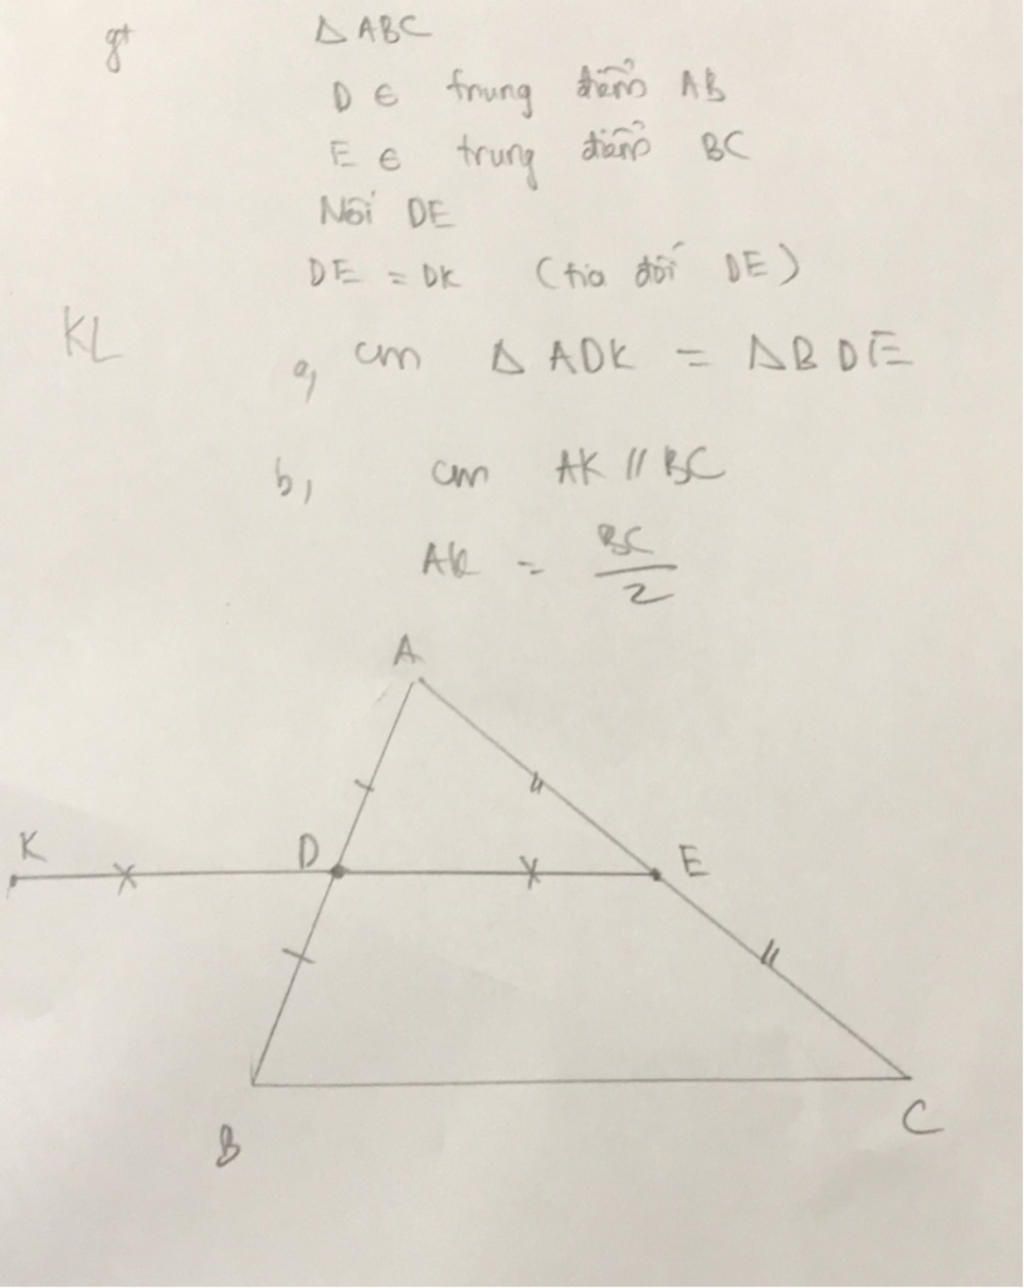 gt ΔABC
D ∈ trung điểm AB
E ∈ trung điểm BC
Nối DE
DE = DK (tia đối DE)
KL
a, cm ΔADK = ΔBDE
b, cm AK // BC
AK = BC/2
A
K D E
B C